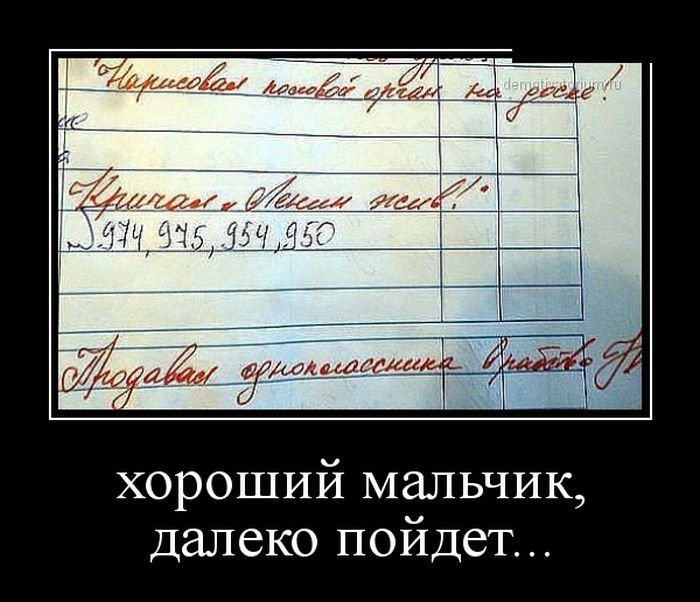 "Нарисовал половой орган на доске!
demotivatorium.ru
Кричал „Ленин жив!"
974, 975, 954, 950
Продавал одноклассника в рабство
хороший мальчик,
далеко пойдет...